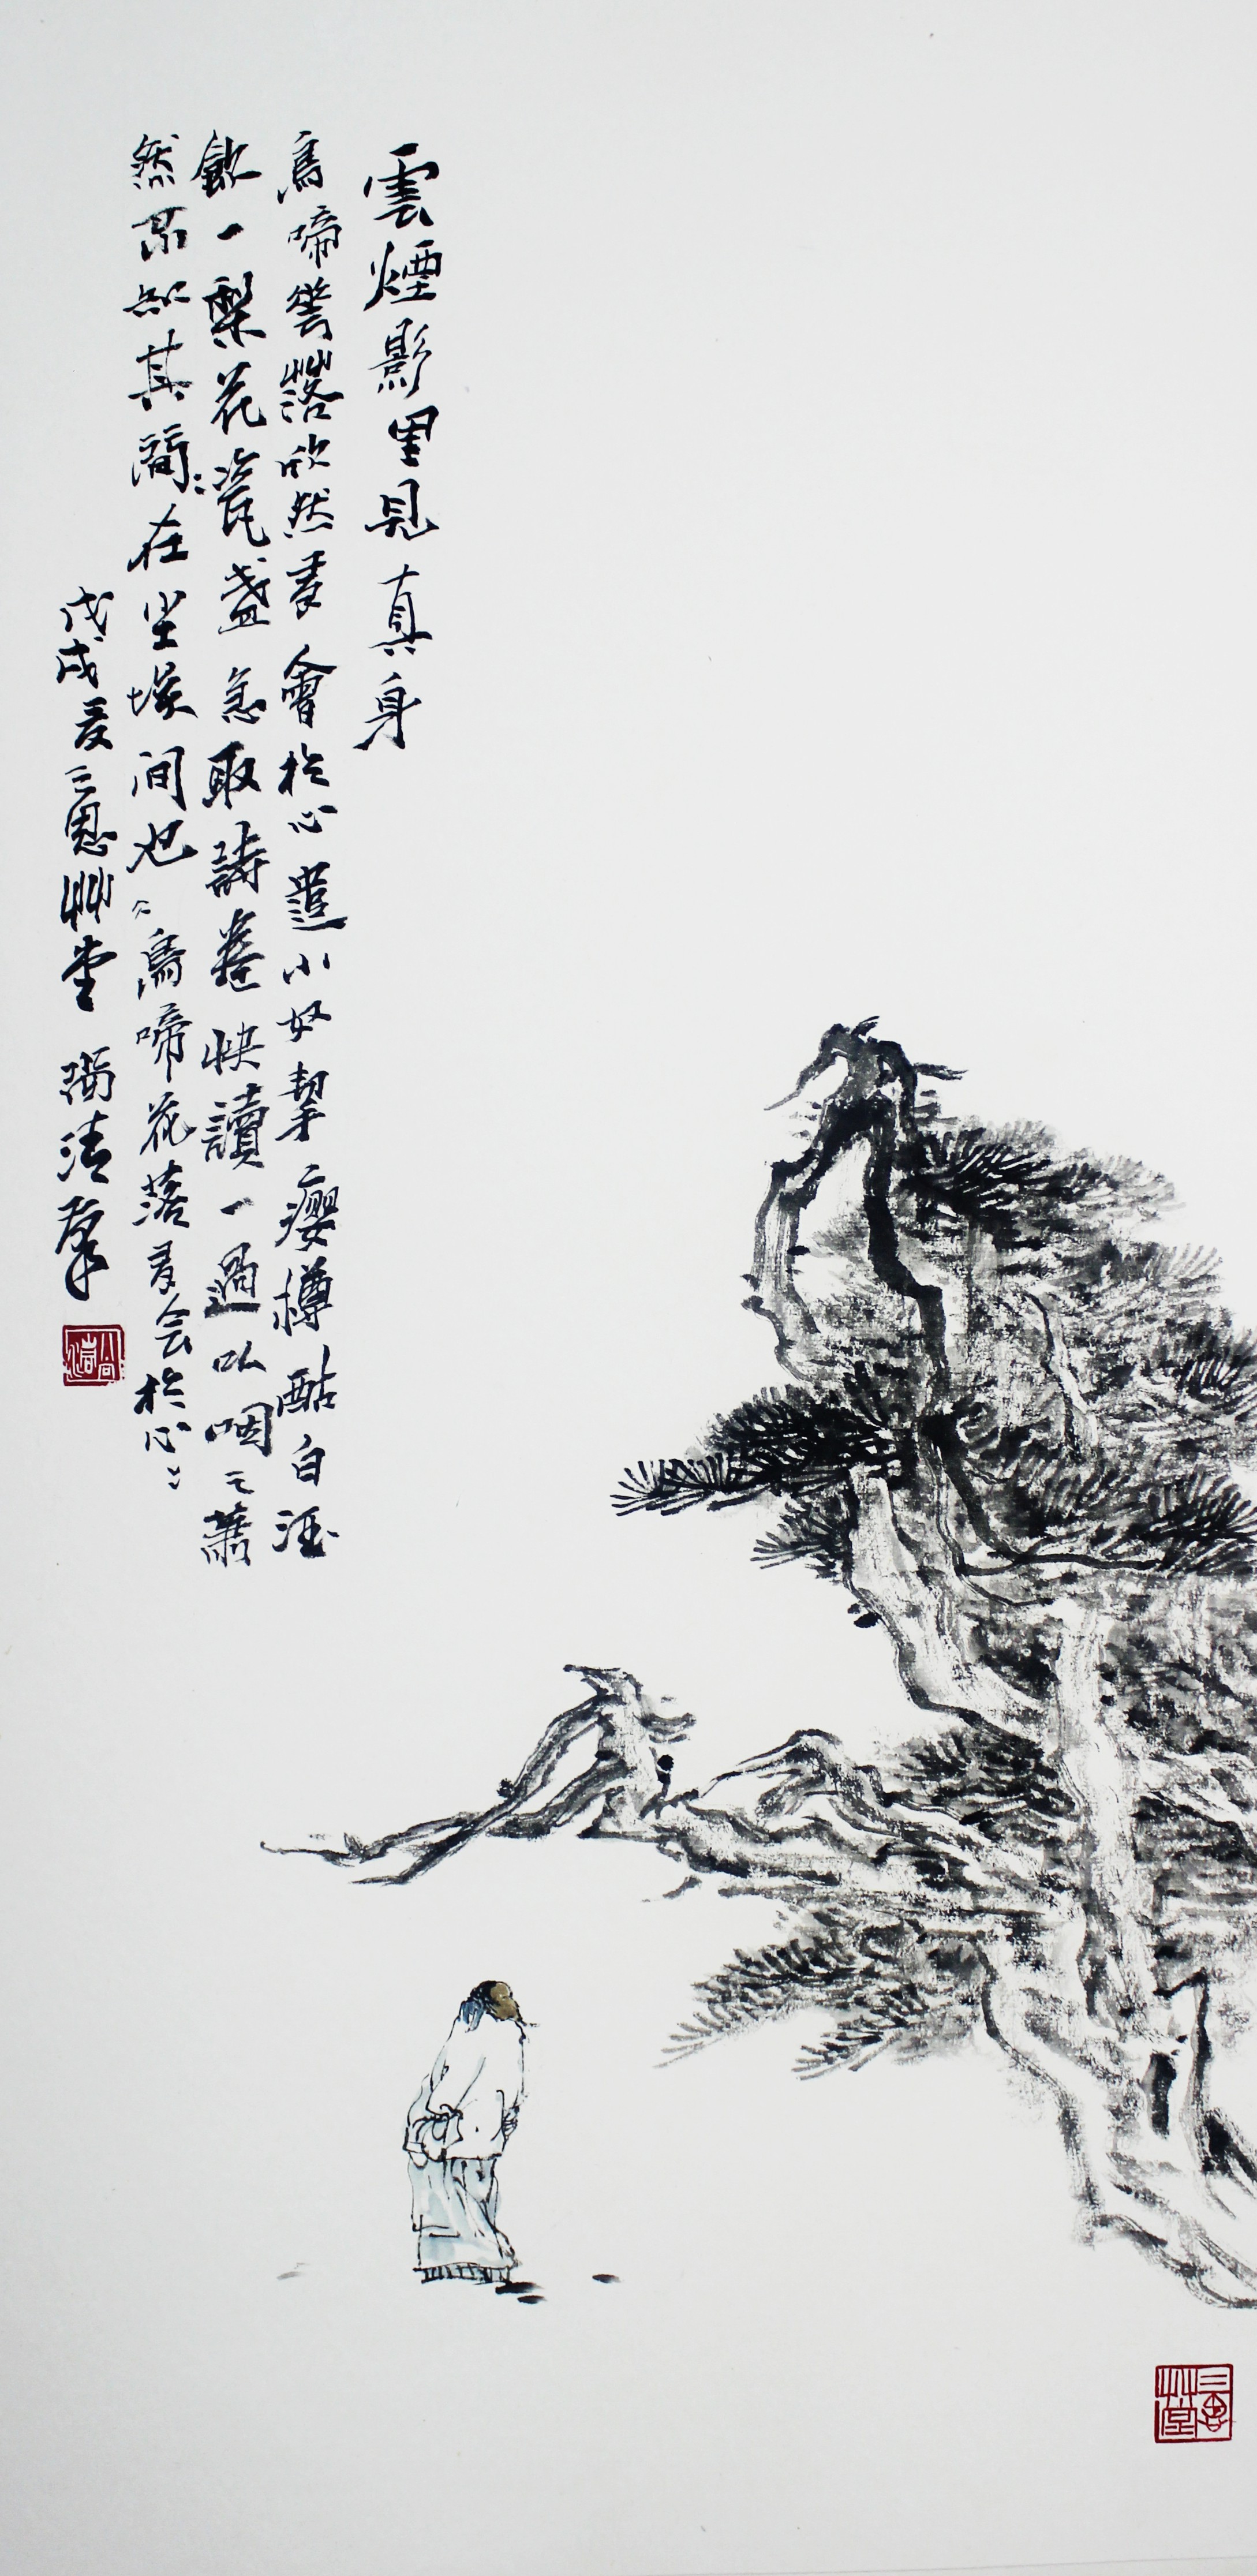 雲煙影里見真身
鳥啼花落欣然有會於心遣小奴挈癭樽酤白酒
飲一梨花瓷盞急取詩卷快讀一過以咽之蕭
然不知其簡:在尘埃间也
鳥啼花落有会於心
戊戌夏三恩艸堂 清
三恩艸堂